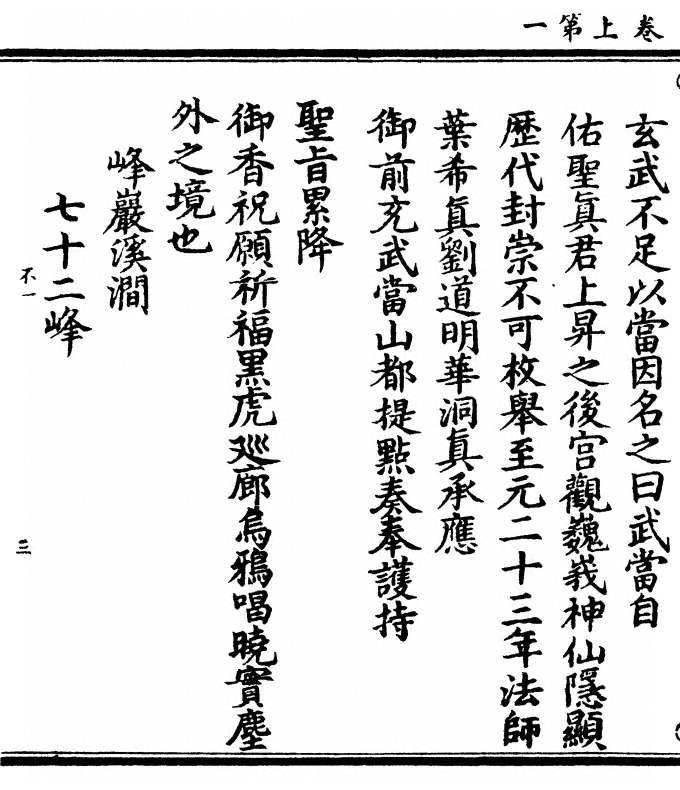 卷上第一
玄武不足以當因名之曰武當自
佑聖眞君上昇之後宫觀巍峩神仙隱顯
歷代封崇不可枚舉至元二十三年法師
葉希眞劉道明華洞眞承應
御前充武當山都提點奏奉護持
聖旨累降
御香祝願祈福黑虎廵廊烏鴉唱曉實塵
外之境也
峰巖溪澗
七十二峰
不一
三